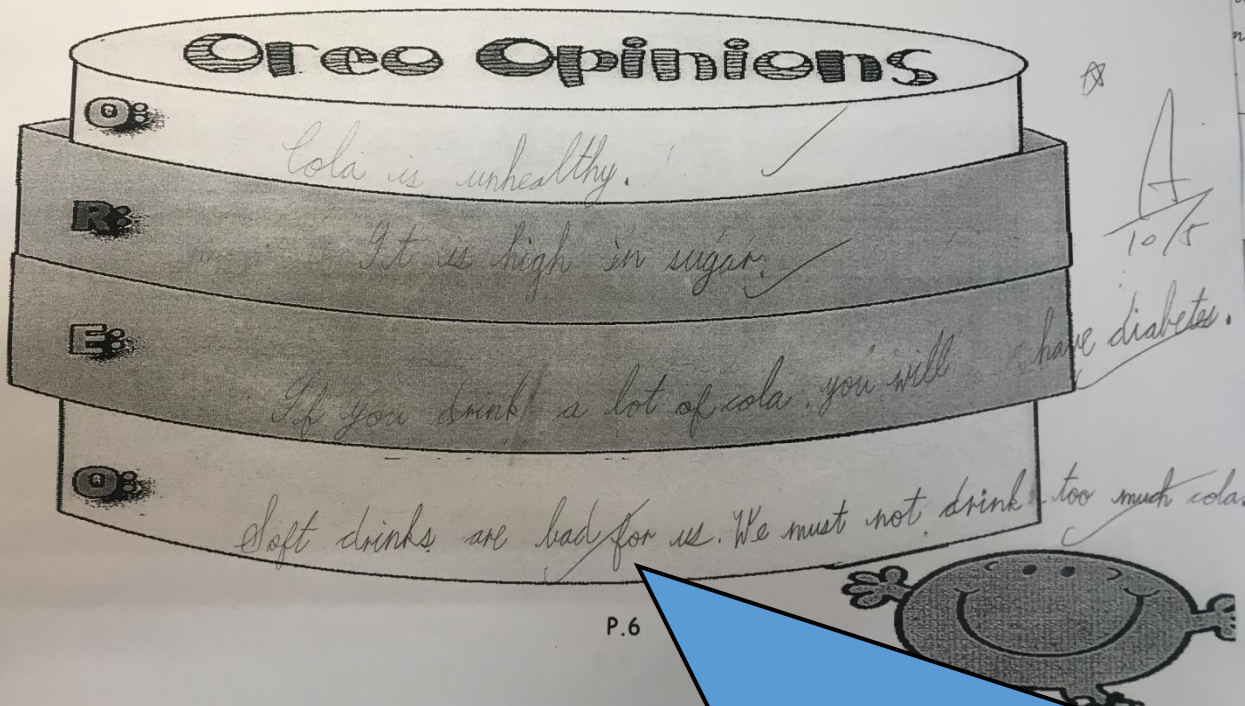 Oreo Opinions
O:
Cola is unhealthy.
R:
It is high in sugar.
E:
If you drink a lot of cola, you will have diabetes.
O:
Soft drinks are bad for us. We must not drink too much cola.
A
10/5
P.6